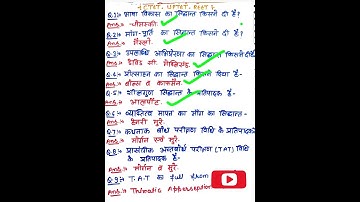 ( CTET, UPTET, REET )
Q.1:- भाषा विकास का सिद्धान्त किसने दी है?
Ans:- चॉमस्की।
Q.2:- मांग-पूर्ति का सिद्धान्त किसने दी है?
Ans:- मैस्लो
Q.3:- उपलब्धि अभिप्रेरणा का सिद्धान्त किसने दी है?
Ans:- डेविड सी. मैक्लिलैंड
Q.4:- प्रोत्साहन का सिद्धान्त किसने दिया है?
Ans:- बोल्स व काफमैन
Q.5:- शीलगुण सिद्धान्त के प्रतिपादक है-
Ans:- आलपोर्ट
Q.6:- व्यक्तित्व मापन का माँग का सिद्धान्त-
Ans:- हेनरी मूरे
Q.7:- कथानक बोध परीक्षण विधि के प्रतिपादक है-
Ans:- मॉर्गन एवं मूरे
Q.8:- प्रासंगिक अन्तर्बोध परीक्षण (TAT) विधि
के प्रतिपादक है-
Ans:- मॉर्गन व मूरे
Q.9:- T.A.T का full from
Ans:- Thimatic Apperseption